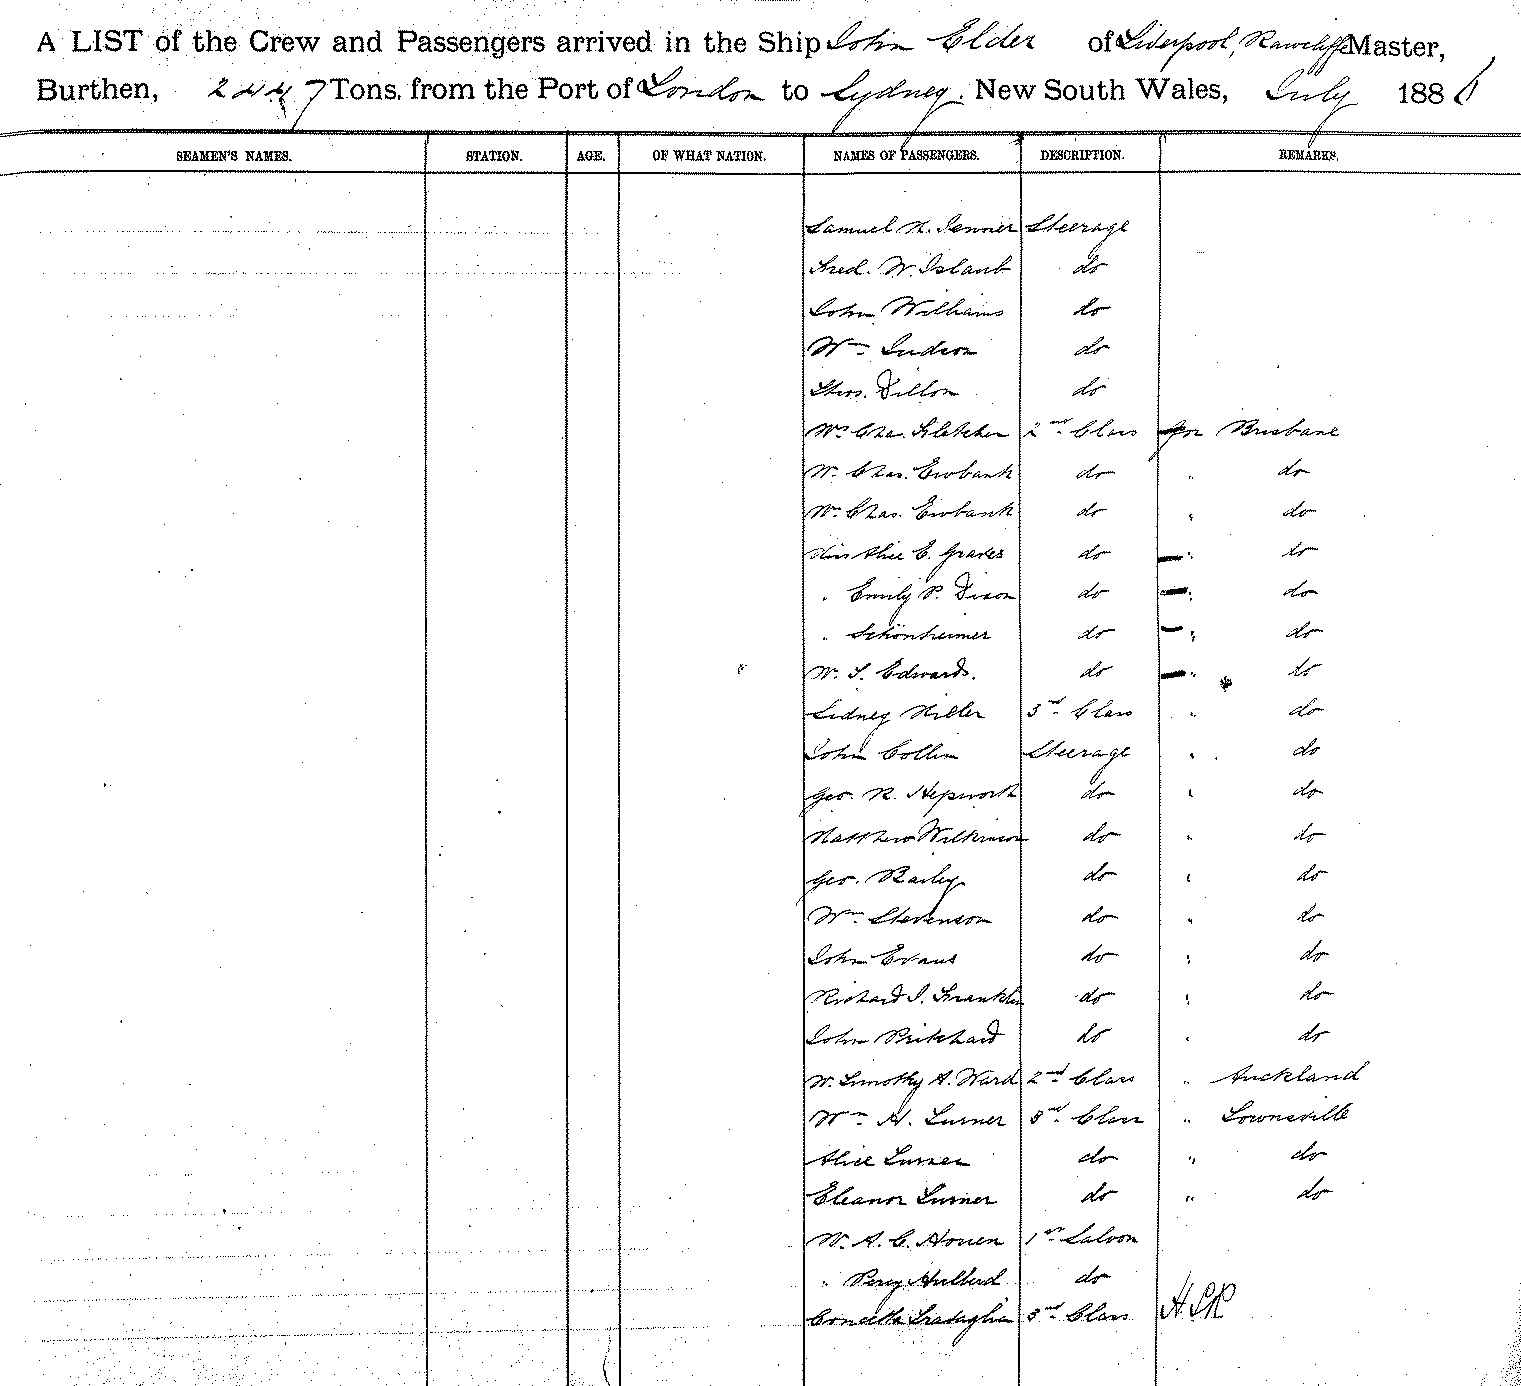 A LIST of the Crew and Passengers arrived in the Ship John Elder of Liverpool, Rawcliffe Master,
Burthen, 2447 Tons. from the Port of London to Sydney. New South Wales, July 1886
SEAMEN'S NAMES. STATION. AGE. OF WHAT NATION. NAMES OF PASSENGERS. DESCRIPTION. REMARKS.
Samuel H. Jenner Steerage
Fred. W. do
John Williams do
Wm Judson do
Thos. Dillon do
Wm Chas. Fletcher 2nd Class for Brisbane
W. Chas. Ewbank do " do
Wm Chas. Ewbank do " do
Miss Alice E. Graves do " do
" Emily P. Dixon do " do
" Schönheimer do " do
W. S. Edwards. do " do
Sidney Miller 3rd Class " do
John Collin Steerage " do
Geo. R. Hepworth do " do
Matthew Wilkinson do " do
Geo. Bailey do " do
Wm Stevenson do " do
John Evans do " do
Richard J. Franklin do " do
John Pritchard do " do
W. Timothy A. Ward 2nd Class " Auckland
Wm H. Turner 3rd Class " Townsville
Alice Turner do " do
Eleanor Turner do " do
W. A. C. 1st Saloon
" Percy Hulberd do
3rd Class